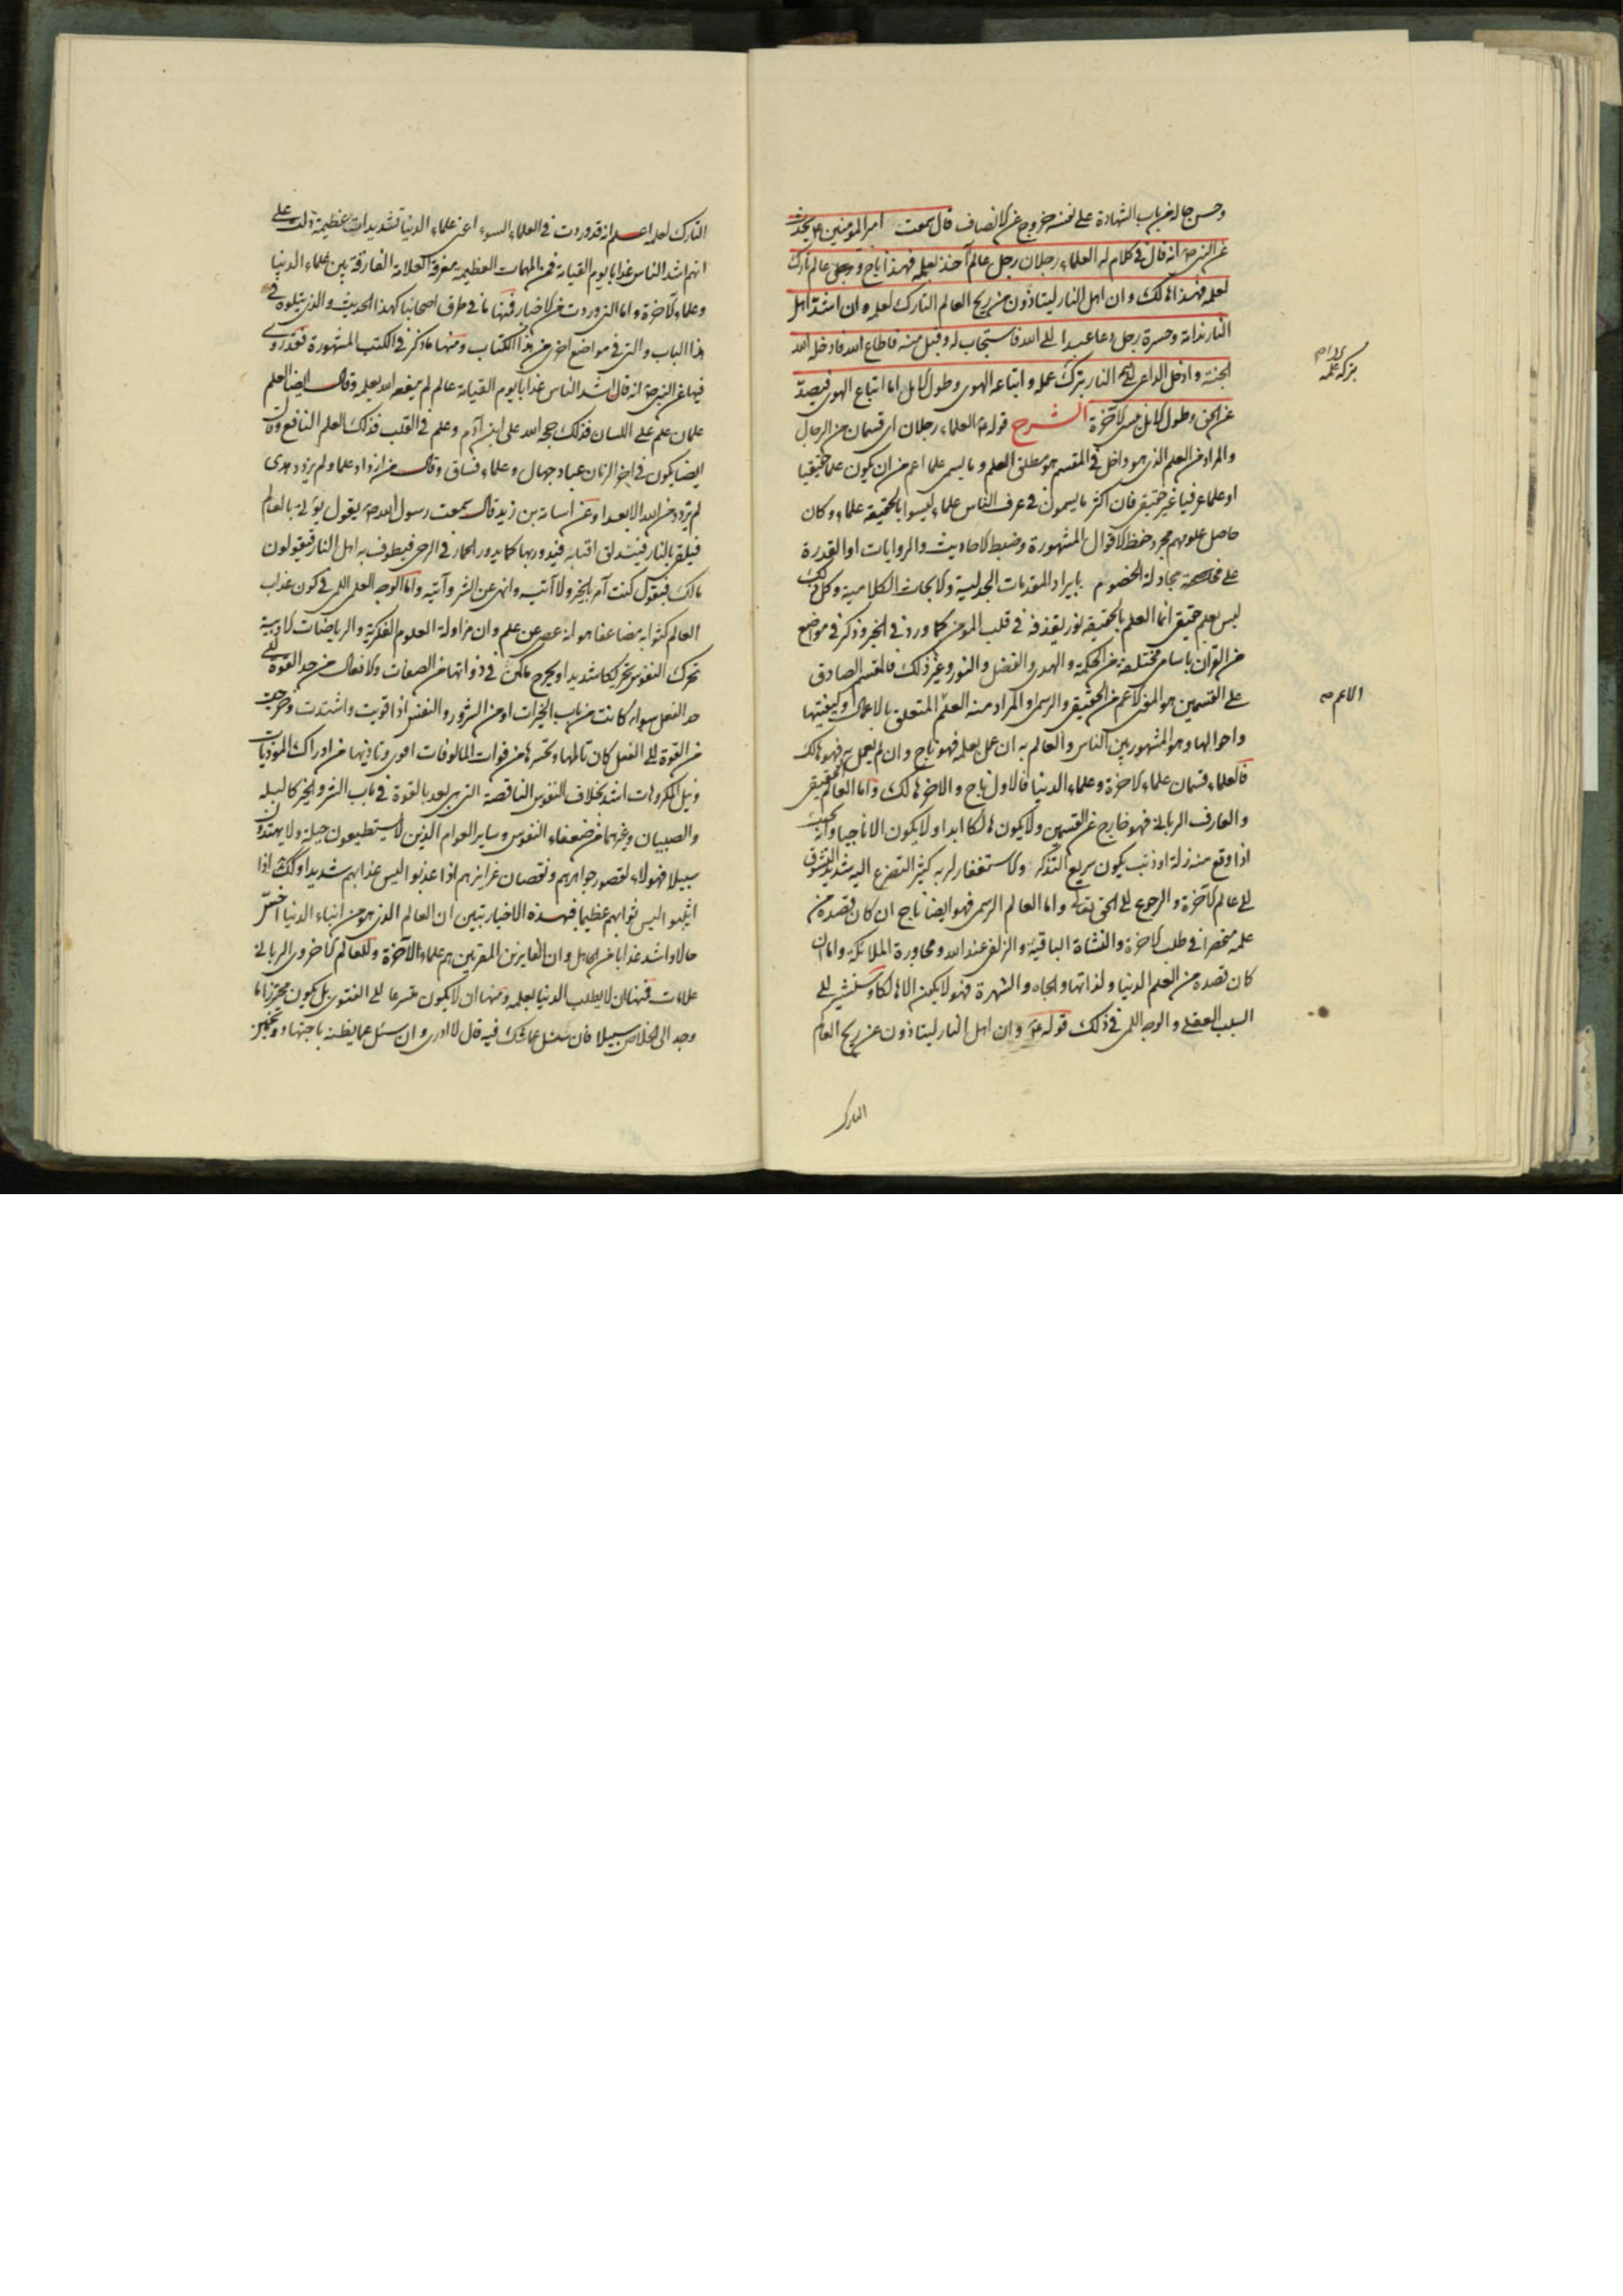 وحسن حاله من باب الشهادة على نفسه خروج عن الانصاف قال سمعت امير المؤمنين ع يحدث
عن النبي ص انه قال في كلام له العلماء رجلان رجل عالم آخذ بعلمه فهذا ناج ورجل عالم تارك
لعلمه فهذا هالك وان اهل النار ليتاذون من ريح العالم التارك لعلمه وان اشد اهل
النار ندامة وحسرة رجل دعا عبدا الى الله فاستجاب له وقبل منه فاطاع الله فادخله الله
الجنة وادخل الداعي النار بتركه عمله واتباعه الهوى وطول الامل اما اتباع الهوى فيصد
عن الحق وطول الامل ينسي الآخرة الشرح قوله ع العلماء رجلان اى قسمان من الرجال
والمراد من العلم الذى هو داخل في المقسم هو مطلق العلم وما يسمى علما اعم من ان يكون علما حقيقيا
او علما عرفيا غير حقيقي فان اكثر ما يسمون في عرف الناس علماء ليسوا بالحقيقة علماء وكان
حاصل علومهم مجرد حفظ الاقوال المشهورة وضبط الاحاديث والروايات او القدرة
على مجادلة الخصوم بايراد المقدمات الجدلية والابحاث الكلامية وكل ذلك
ليس بعلم حقيقي انما العلم بالحقيقة نور يقذفه في قلب المؤمن كما ورد في الخبر وذكر في مواضع
من القرآن باسامي مختلفة من الحكمة والهدى والفضل والنور وغير ذلك فالمقسم الصادق
على القسمين هو المعنى الاعم من الحقيقي والرسمي والمراد منه العلم المتعلق بالاعمال وكيفيتها
واحوالها وهو المشهور بين الناس والعالم به ان عمل بعلمه فهو ناج وان لم يعمل به فهو هالك
فالعلماء قسمان علماء الاخرة وعلماء الدنيا فالاول ناج والاخر هالك واما العالم الحقيقي
والعارف الرباني فهو خارج عن القسمين ولا يكون هالكا ابدا ولا يكون الا ناجيا وانه بحيث
اذا وقع منه زلة او ذنب يكون سريع التذكر والاستغفار لربه كثير التضرع اليه شديد الشوق
الى عالم الآخرة والرجوع الى الحق تعالى واما العالم الرسمي فهو ايضا ناج ان كان قصده من
علمه منحصرا في طلب الاخرة والنشأة الباقية والزلفى عند الله ومجاورة الملائكة واما ان
كان قصده من العلم الدنيا ولذاتها والجاه والشهرة فهو لا يكون الا هالكا وسنشير الى
السبب العقلي والوجه اللمي في ذلك قوله ع وان اهل النار ليتاذون من ريح العالم
التارك
بتركه علمه
الاعم ص
التارك لعلمه اعلم انه قد وردت في العلماء السوء اعنى علماء الدنيا تشديدات عظيمة دلت على
انهم اشد الناس عذابا يوم القيامة فمن المهمات العظيمة معرفة العلامة الفارقة بين علماء الدنيا
وعلماء الآخرة واما التي وردت من الاخبار فمنها ما في طرف اصحابنا كهذا الحديث والذي يتلوه في
هذا الباب والتي في مواضع اخر من هذا الكتاب ومنها ما ذكر في الكتب المشهورة فقد روى
فيها عن النبي ص انه قال اشد الناس عذابا يوم القيامة عالم لم ينفعه الله بعلمه وقال ايضا العلم
علمان علم على اللسان فذلك حجة الله على ابن آدم وعلم في القلب فذلك العلم النافع وقال
ايضا يكون في آخر الزمان عباد جهال وعلماء فساق وقال من ازداد علما ولم يزدد هدى
لم يزدد من الله الا بعدا وعن اسامة بن زيد قال سمعت رسول الله ص يقول يؤتى بالعالم
فيلقى بالنار فتندلق اقتابه فيدور بها كما يدور الحمار في الرحى فيطوف به اهل النار فيقولون
مالك فيقول كنت آمر بالخير ولا آتيه وانهى عن الشر وآتيه واما الوجه العلمي اللمي في كون عذاب
العالم كثوابه مضاعفا هو انه عصى عن علم وان مزاولة العلوم الفكرية والرياضات الادبية
تحرك النفوس تحريكا شديدا ويخرج ما كمن في ذواتها من الصفات والافعال من حد القوة الى
حد الفعل سواء كانت من باب الخيرات او من الشرور والنفس اذا قويت واشتدت وخرجت
من القوة الى الفعل كان تالمها وتحسرها من فوات المالوفات اقوى وتاذيها من ادراك الموذيات
ونيل المكروهات اشد بخلاف النفوس الناقصة التي هى بعد بالقوة في باب الشر والخير كالبله
والصبيان وغيرهما من ضعفاء النفوس وساير العوام الذين لا يستطيعون حيلة ولا يهتدون
سبيلا فهولاء لقصور جواهرهم ونقصان غرايزهم اذا عذبوا ليس عذابهم شديدا وكذلك اذا
اثيبوا ليس ثوابهم عظيما فهذه الاخبار تبين ان العالم الذى هو من ابناء الدنيا اخس
حالا واشد عذابا من الجاهل وان الفايزين المقربين هم علماء الآخرة وللعالم الاخروي الرباني
علامات فمنها ان لا يطلب الدنيا بعلمه ومنها ان لا يكون متسرعا الى الفتوى بل يكون محترزا ما
وجد الى الخلاص سبيلا فان سئل عما شك فيه قال لا ادرى وان سئل عما يظنه باجتهاد وتخمين